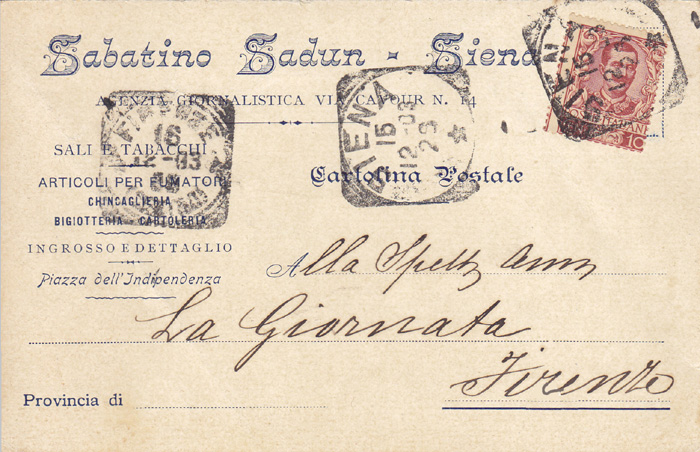 Sabatino Sadun - Siena
AGENZIA GIORNALISTICA VIA CAVOUR N. 14
SIENA
15
12-03
FIRENZE
16
12-03
SALI E TABACCHI
ARTICOLI PER FUMATORI
CHINCAGLIERIA
BIGIOTTERIA CARTOLERIA
INGROSSO E DETTAGLIO
Piazza dell'Indipendenza
Cartolina Postale
Alla Spett Amm
La Giornata
Firenze
Provincia di